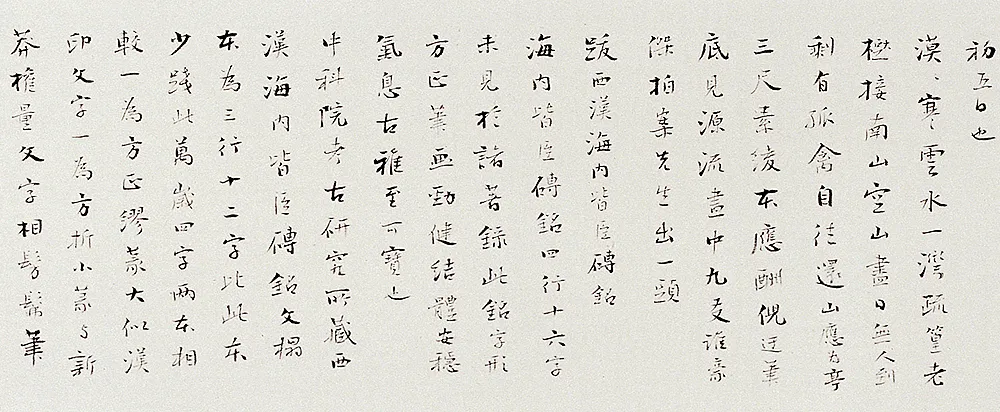 初五日也
漠〻寒雲水一灣疏篁老
樹接南山空山盡日無人到
剩有孤禽自往還山應為亭
三尺素綾本應酬倪迂筆
底見源流畫中九友誰豪
傑拍案先生出一頭
跋西漢海内皆臣磚銘
海内皆臣磚銘四行十六字
未見於諸著録此銘字形
方正筆画勁健結體安穩
氣息古雅至可寶也
中科院考古研究所藏西
漢海内皆臣磚銘文搨
本為三行十二字比此本
少踐此萬歲四字兩本相
較一為方正繆篆大似漢
印文字一為方折小篆与新
莽權量文字相髣髴筆